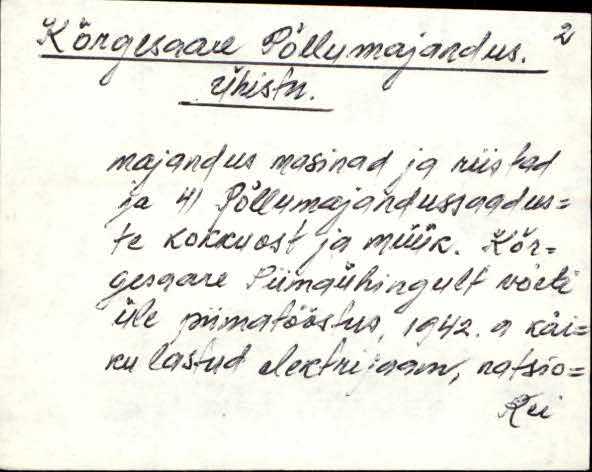 2
Kõrgesaare Põllumajandus.
ühistu.
majandus masinad ja riistad
ja 4) Põllumajandussaadus=
te kokkuost ja müük. Kõr=
gesaare Piimaühingult võeti
üle piimatööstus, 1942. a käi=
ku lastud elektrijaam, natsio=